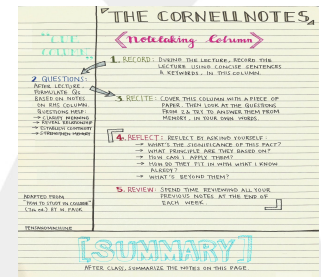 THE CORNELL NOTES
"CUE COLUMN"
Notetaking Column
1. RECORD: DURING THE LECTURE, RECORD THE
LECTURE USING CONCISE SENTENCES
& KEYWORDS, IN THIS COLUMN.
2. QUESTIONS:
AFTER LECTURE,
FORMULATE Qs
BASED ON NOTES
ON RHS COLUMN.
QUESTIONS HELP:
→ CLARIFY MEANING
→ REVEAL RELATIONSHIP
→ ESTABLISH CONTINUITY
→ STRENGTHEN MEMORY
3. RECITE: COVER THIS COLUMN WITH A PIECE OF
PAPER. THEN LOOK AT THE QUESTIONS
FROM 2 & TRY TO ANSWER THEM FROM
MEMORY, IN YOUR OWN WORDS.
4. REFLECT: REFLECT BY ASKING YOURSELF:
→ WHAT'S THE SIGNIFICANCE OF THIS FACT?
→ WHAT PRINCIPLE ARE THEY BASED ON?
→ HOW CAN I APPLY THEM?
→ HOW DO THEY FIT IN WITH WHAT I KNOW
ALREDY?
→ WHAT'S BEYOND THEM?
5. REVIEW: SPEND TIME REVIEWING ALL YOUR
PREVIOUS NOTES AT THE END OF
EACH WEEK.
ADAPTED FROM
"HOW TO STUDY IN COLLEGE"
(7th ed.) BY W. PAUK
PENTANOMACHINE
[SUMMARY]
AFTER CLASS, SUMMARIZE THE NOTES ON THIS PAGE.